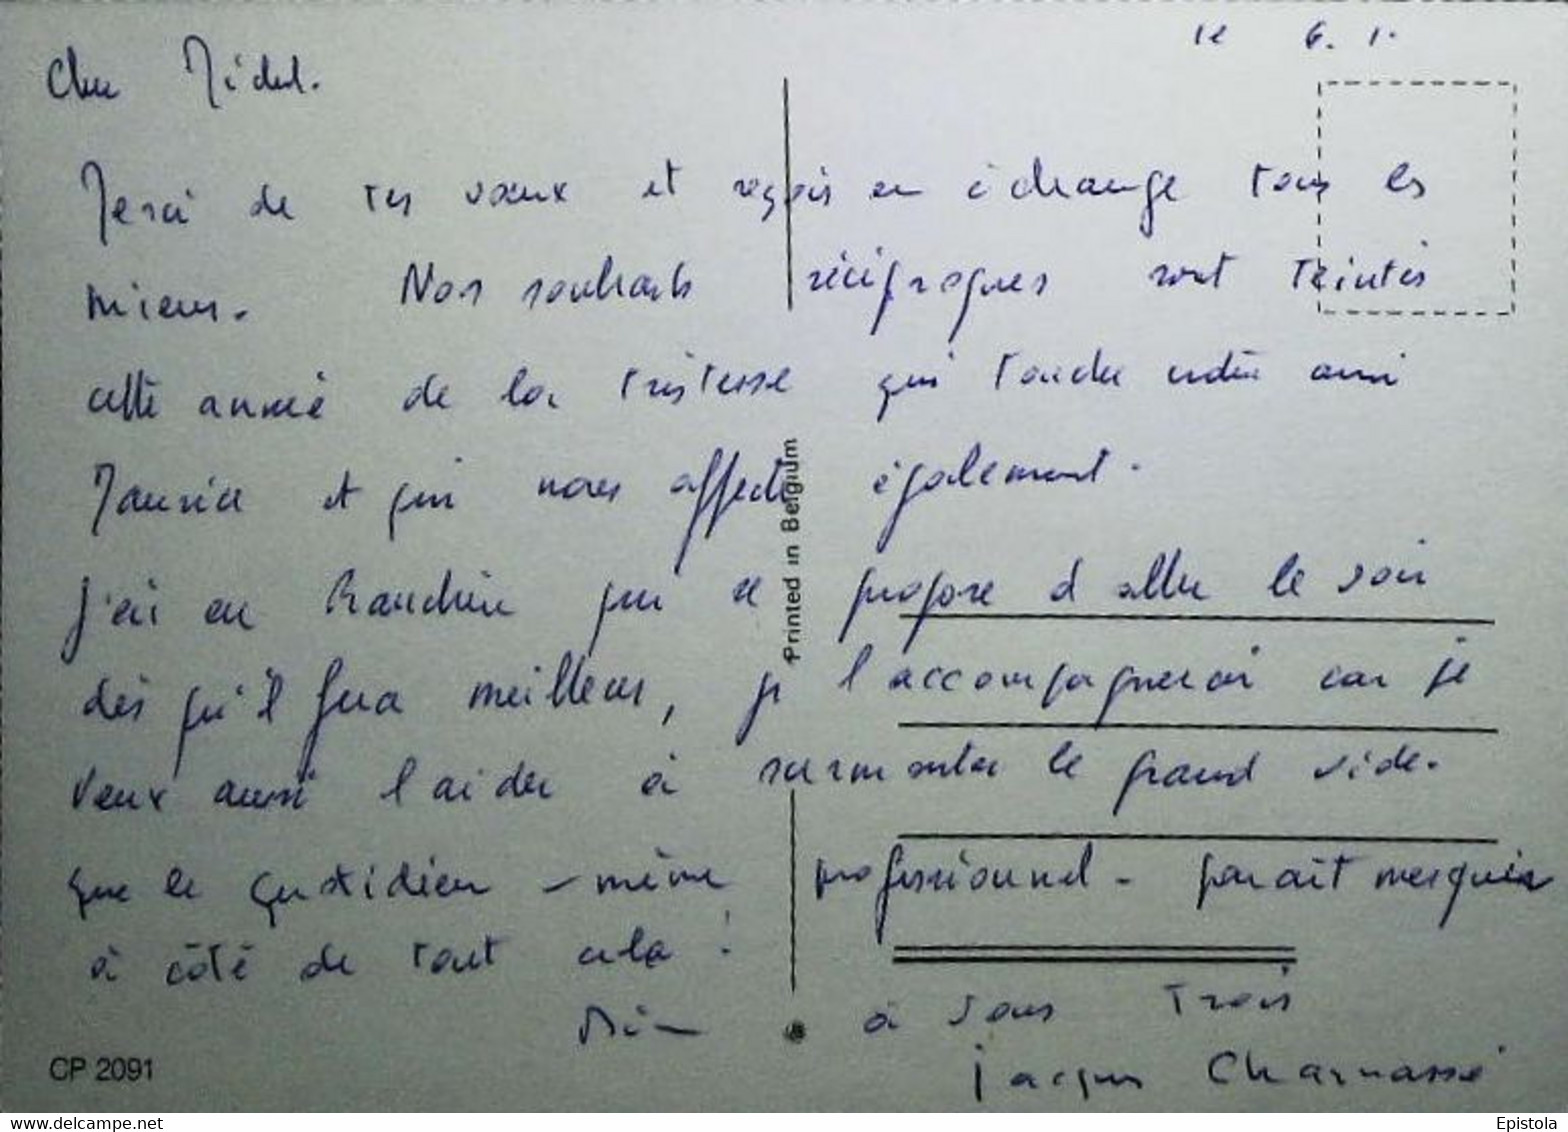 le 6. 1.
Cher Michel.
Merci de tes vœux et reçois en échange tous les
mieux. Nos souhaits réciproques sont teintés
cette année de la tristesse qui touche notre ami
Maurice et qui nous affecte également.
J'ai eu qui se propose d'aller le voir
dès qu'il fera meilleur, je l'accompagnerai car je
veux aussi l'aider à surmonter le grand vide.
que le quotidien - même professionnel - paraît mesquin
à côté de tout cela !
à vous trois
Jacques Charnassé
Printed in Belgium
CP 2091
www.delcampe.net
Epistola